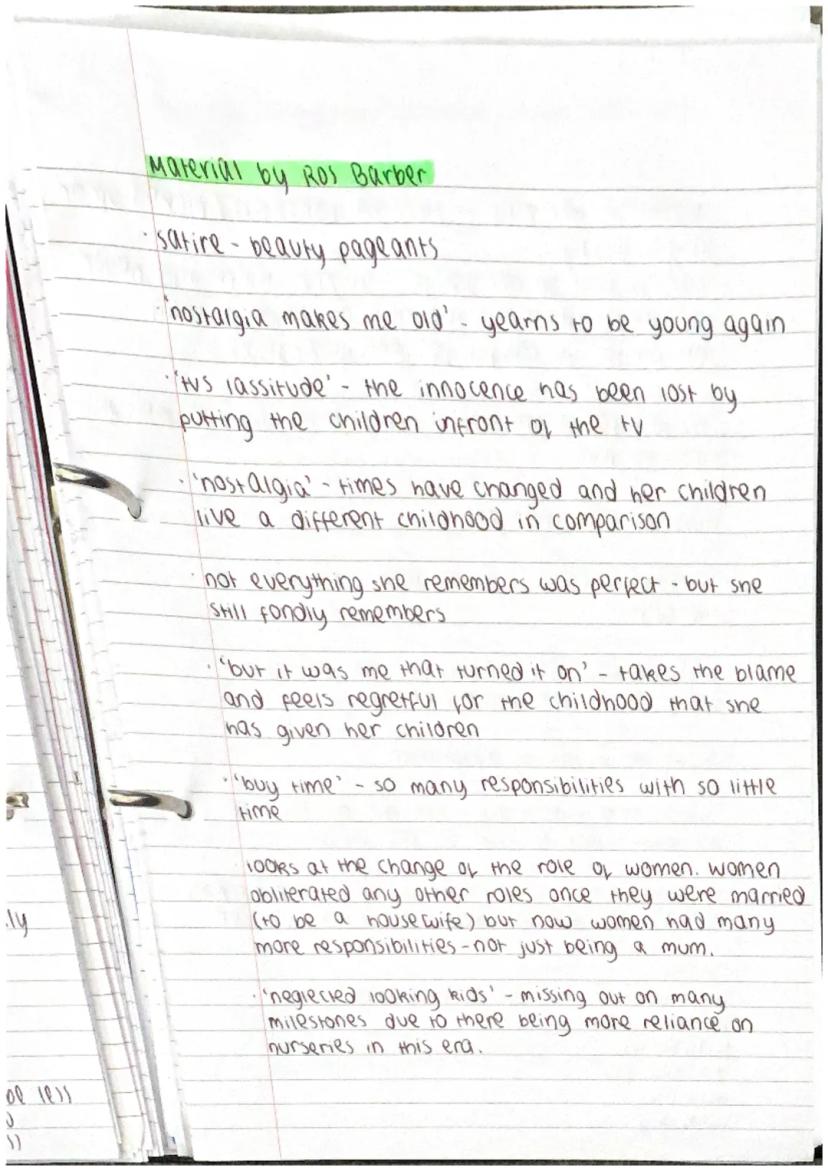 Material by Ros Barber
· satire - beauty pageants
'nostalgia makes me old' - yearns to be young again
· 'tvs lassitude' - the innocence has been lost by
putting the children infront of the tv
· 'nostalgia' - times have changed and her children
live a different childhood in comparison
· not everything she remembers was perfect - but she
still fondly remembers
· 'but it was me that turned it on' - takes the blame
and feels regretful for the childhood that she
has given her children
· 'buy time' - so many responsibilities with so little
time
looks at the change of the role of women. women
obliterated any other roles once they were married
(to be a housewife) but now women had many
more responsibilities - not just being a mum.
· 'neglected looking kids' - missing out on many
milestones due to there being more reliance on
nurseries in this era.
ly
be less